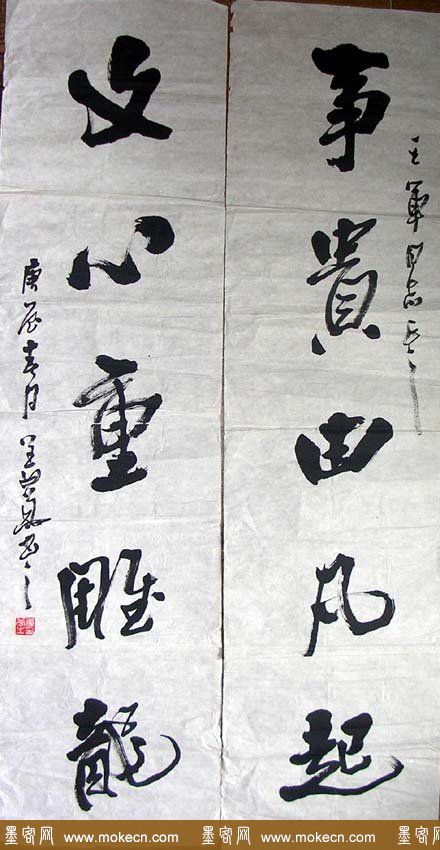 事貴由凡起
文心重雕龍
庚辰春月
墨客网 www.mokecn.com 墨客网 www.mokecn.com 墨客网